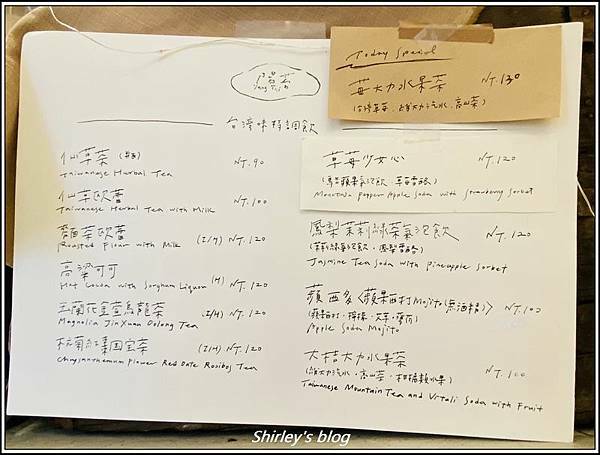 Today Special
莓大力水果茶 NT.130
(台灣草莓、維大力汽水、高山茶)
台灣味特調飲
仙草茶 NT.90
Taiwanese Herbal Tea
仙草欧蕾 NT.100
Taiwanese Herbal Tea with Milk
麵茶欧蕾 (I/H) NT.120
Roasted Flour with Milk
高粱可可 (H) NT.120
Hot Cocoa with Sorghum Liquor
玉蘭花金萱烏龍茶 (I/H) NT.120
Magnolia JinXuan Oolong Tea
杭菊紅棗国宝茶 (I/H) NT.120
Chrysanthemum Flower Red Date Rooibos Tea
草莓少女心 NT.120
(馬告蘋果氣泡飲、草莓雪酪)
Mountain Pepper Apple Soda with Strawberry Sorbet
鳳梨茉莉綠茶氣泡飲 NT.120
(茉莉綠茶氣泡飲、鳳梨雪酪)
Jasmine Tea Soda with Pineapple Sorbet
蘋西多〈蘋果西打Mojito(無酒精)〉 NT.100
(蘋果西打、檸檬、薄荷)
Apple Soda Mojito
大桔大力水果茶 NT.100
(維大力汽水、高山茶、柑橘類水果)
Taiwanese Mountain Tea and Vitali Soda with Fruit
Shirley's blog